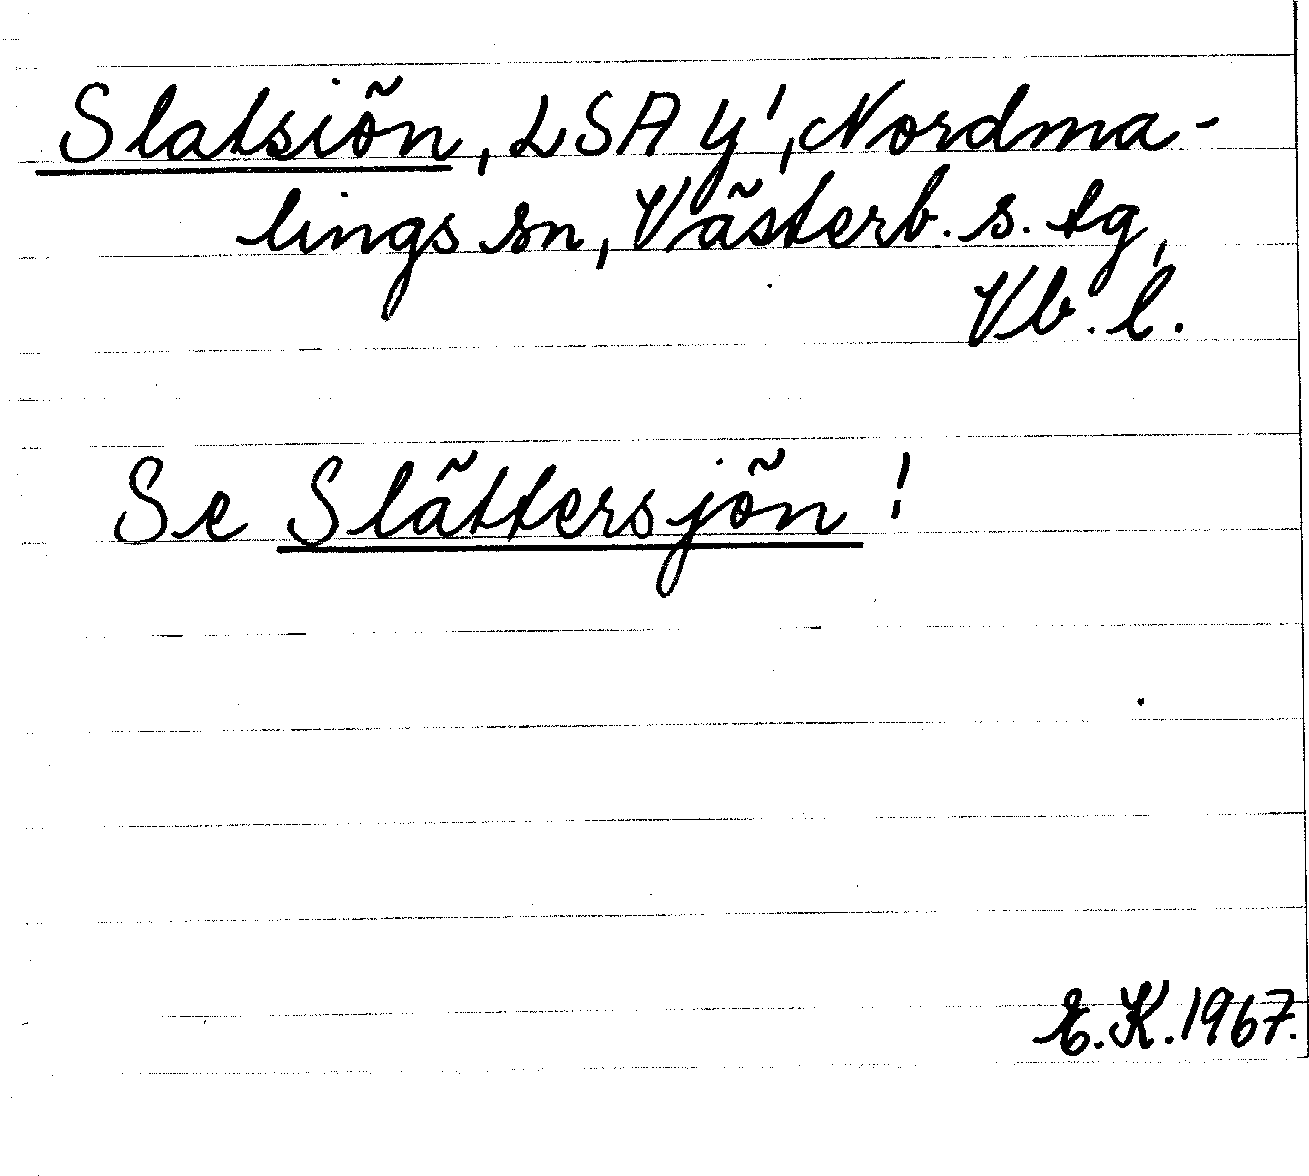 Slatsiön, LSA Y¹, Nordma-
lings sn, Västerb. s. tg,
Vb. l.
Se Slättersjön!
E. K. 1967.